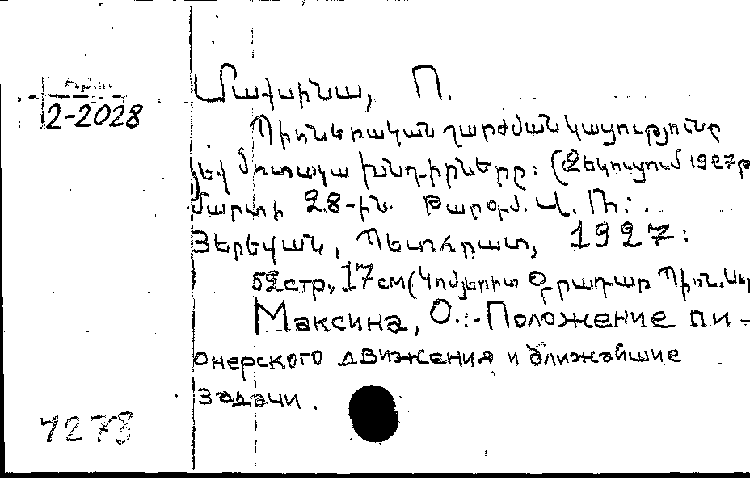 2-2028
Մակսինա, Պ.
Պիոներական շարժման կացությունը
յեվ մոտակա խնդիրները: (Զեկուցում 1927թ
մարտի 28-ին. Թարգմ.
Յերեվան, Պետհրատ, 1927:
52стр., 17см (
Максина, О.:-Положение пи-
онерского движения и ближайшие
задачи.
7278